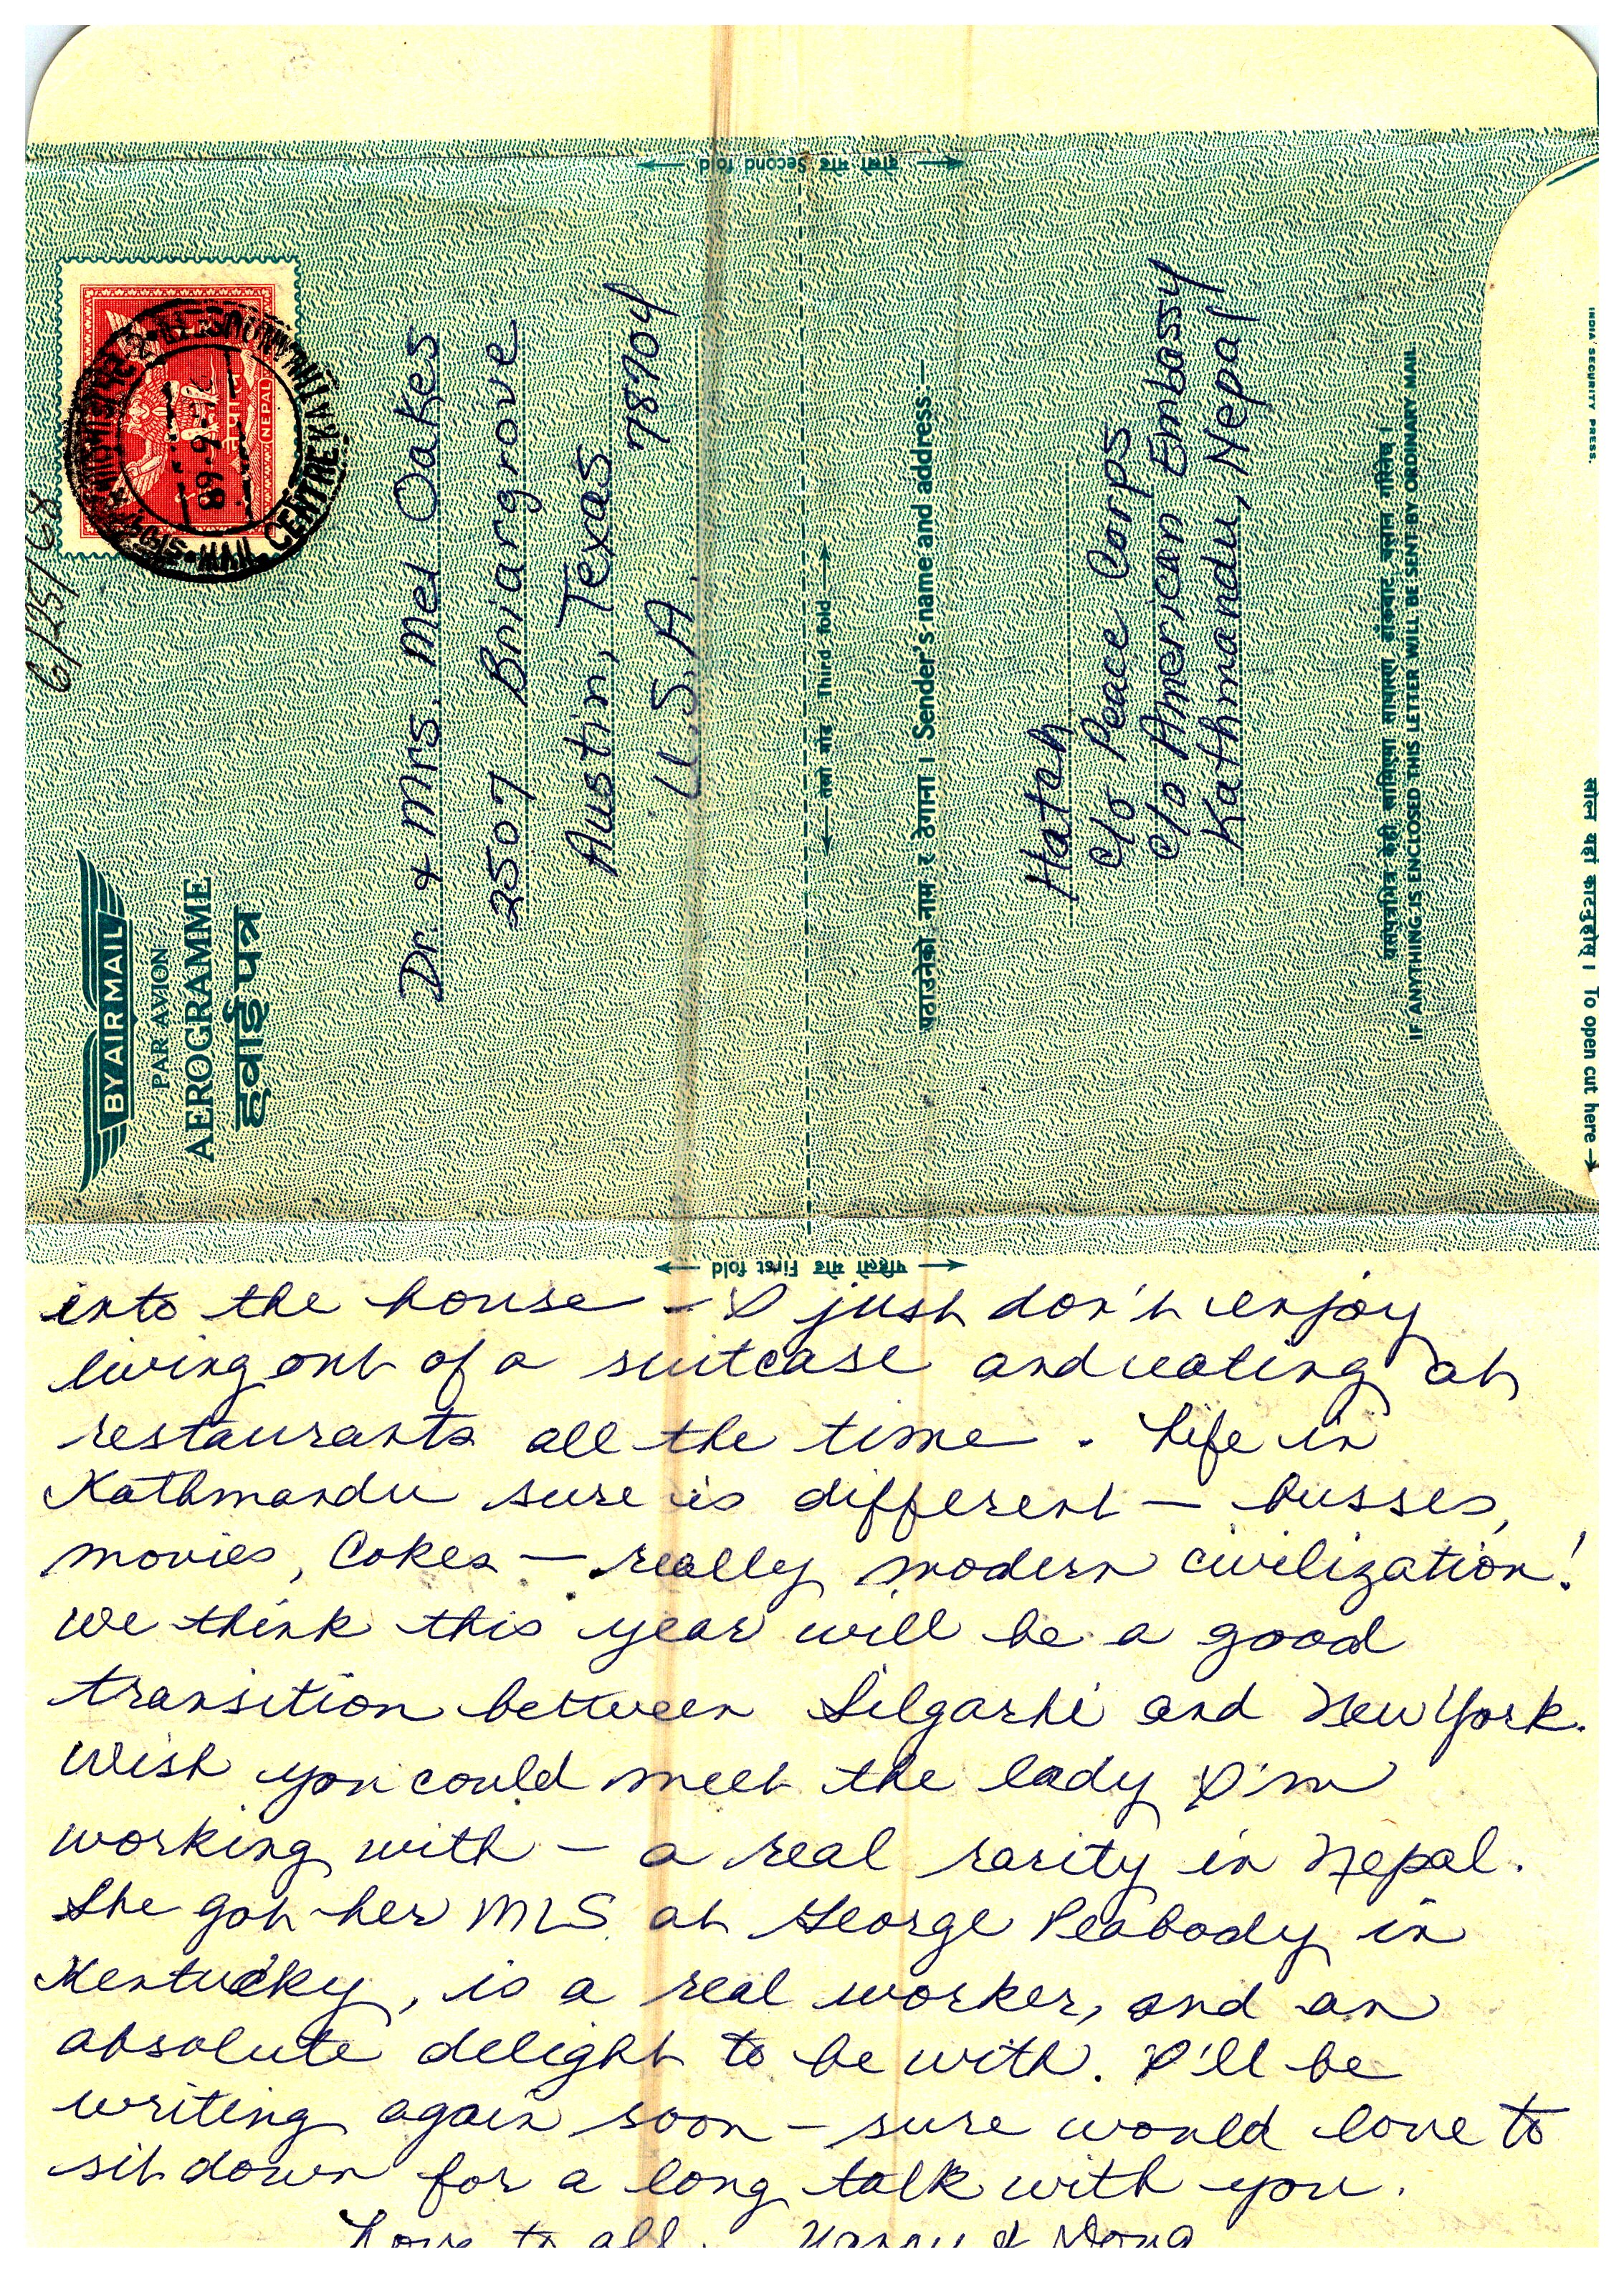 दोस्रो मोड Second fold
6/25/68
BY AIR MAIL
PAR AVION
AEROGRAMME
हवाई पत्र
नेपाल
NEPAL
Dr. & Mrs. Mel Oakes
2507 Briargrove
Austin, Texas
78704
U.S.A.
तेस्रो मोड Third fold
पठाउनेको नाम र ठेगाना । Sender's name and address:—
Hatch
c/o Peace Corps
c/o American Embassy
Kathmandu, Nepal
यसपत्रभित्र केही
IF ANYTHING IS ENCLOSED THIS LETTER WILL BE SENT BY ORDINARY MAIL
INDIA SECURITY PRESS.
खोल्न यहां काट्नुहोस् । To open cut here
पहिलो मोड First fold
into the house – I just don't enjoy
living out of a suitcase and eating at
restaurants all the time. Life in
Kathmandu sure is different – busses,
movies, Cokes – really modern civilization!
We think this year will be a good
transition between Silgarhi and New York.
Wish you could meet the lady I'm
working with – a real rarity in Nepal.
She got her MLS at George Peabody in
Kentucky, is a real worker, and an
absolute delight to be with. I'll be
writing again soon – sure would love to
sit down for a long talk with you.
Love to all, Nancy & Doug